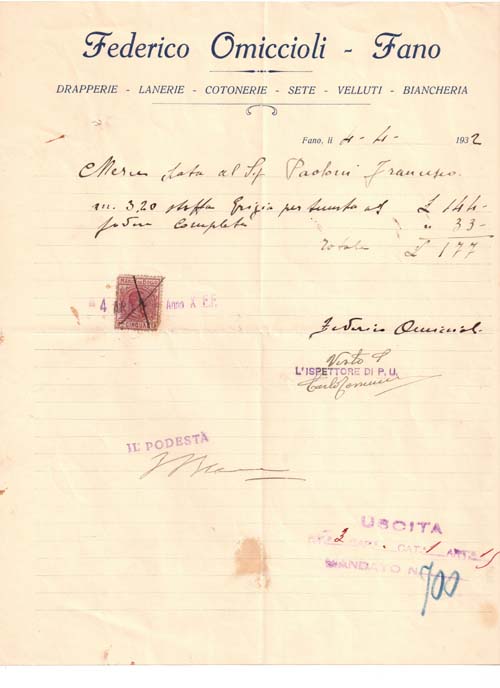 Federico Omiccioli - Fano
DRAPPERIE - LANERIE - COTONERIE - SETE - VELLUTI - BIANCHERIA
Fano, li 4-4- 1932
Merce data al Sig Paoloni Francesco.
m. 3,20 stoffa grigia per £ 144-
fodera completa " 33-
Totale £ 177
MARCA DA BOLLO
4 APR Anno X E.F.
CINQUANTA
Federico Omiccioli
Visto
L'ISPETTORE DI P. U.
IL PODESTÀ
USCITA
2 CAT. 1 ART. 15
MANDATO N. 700